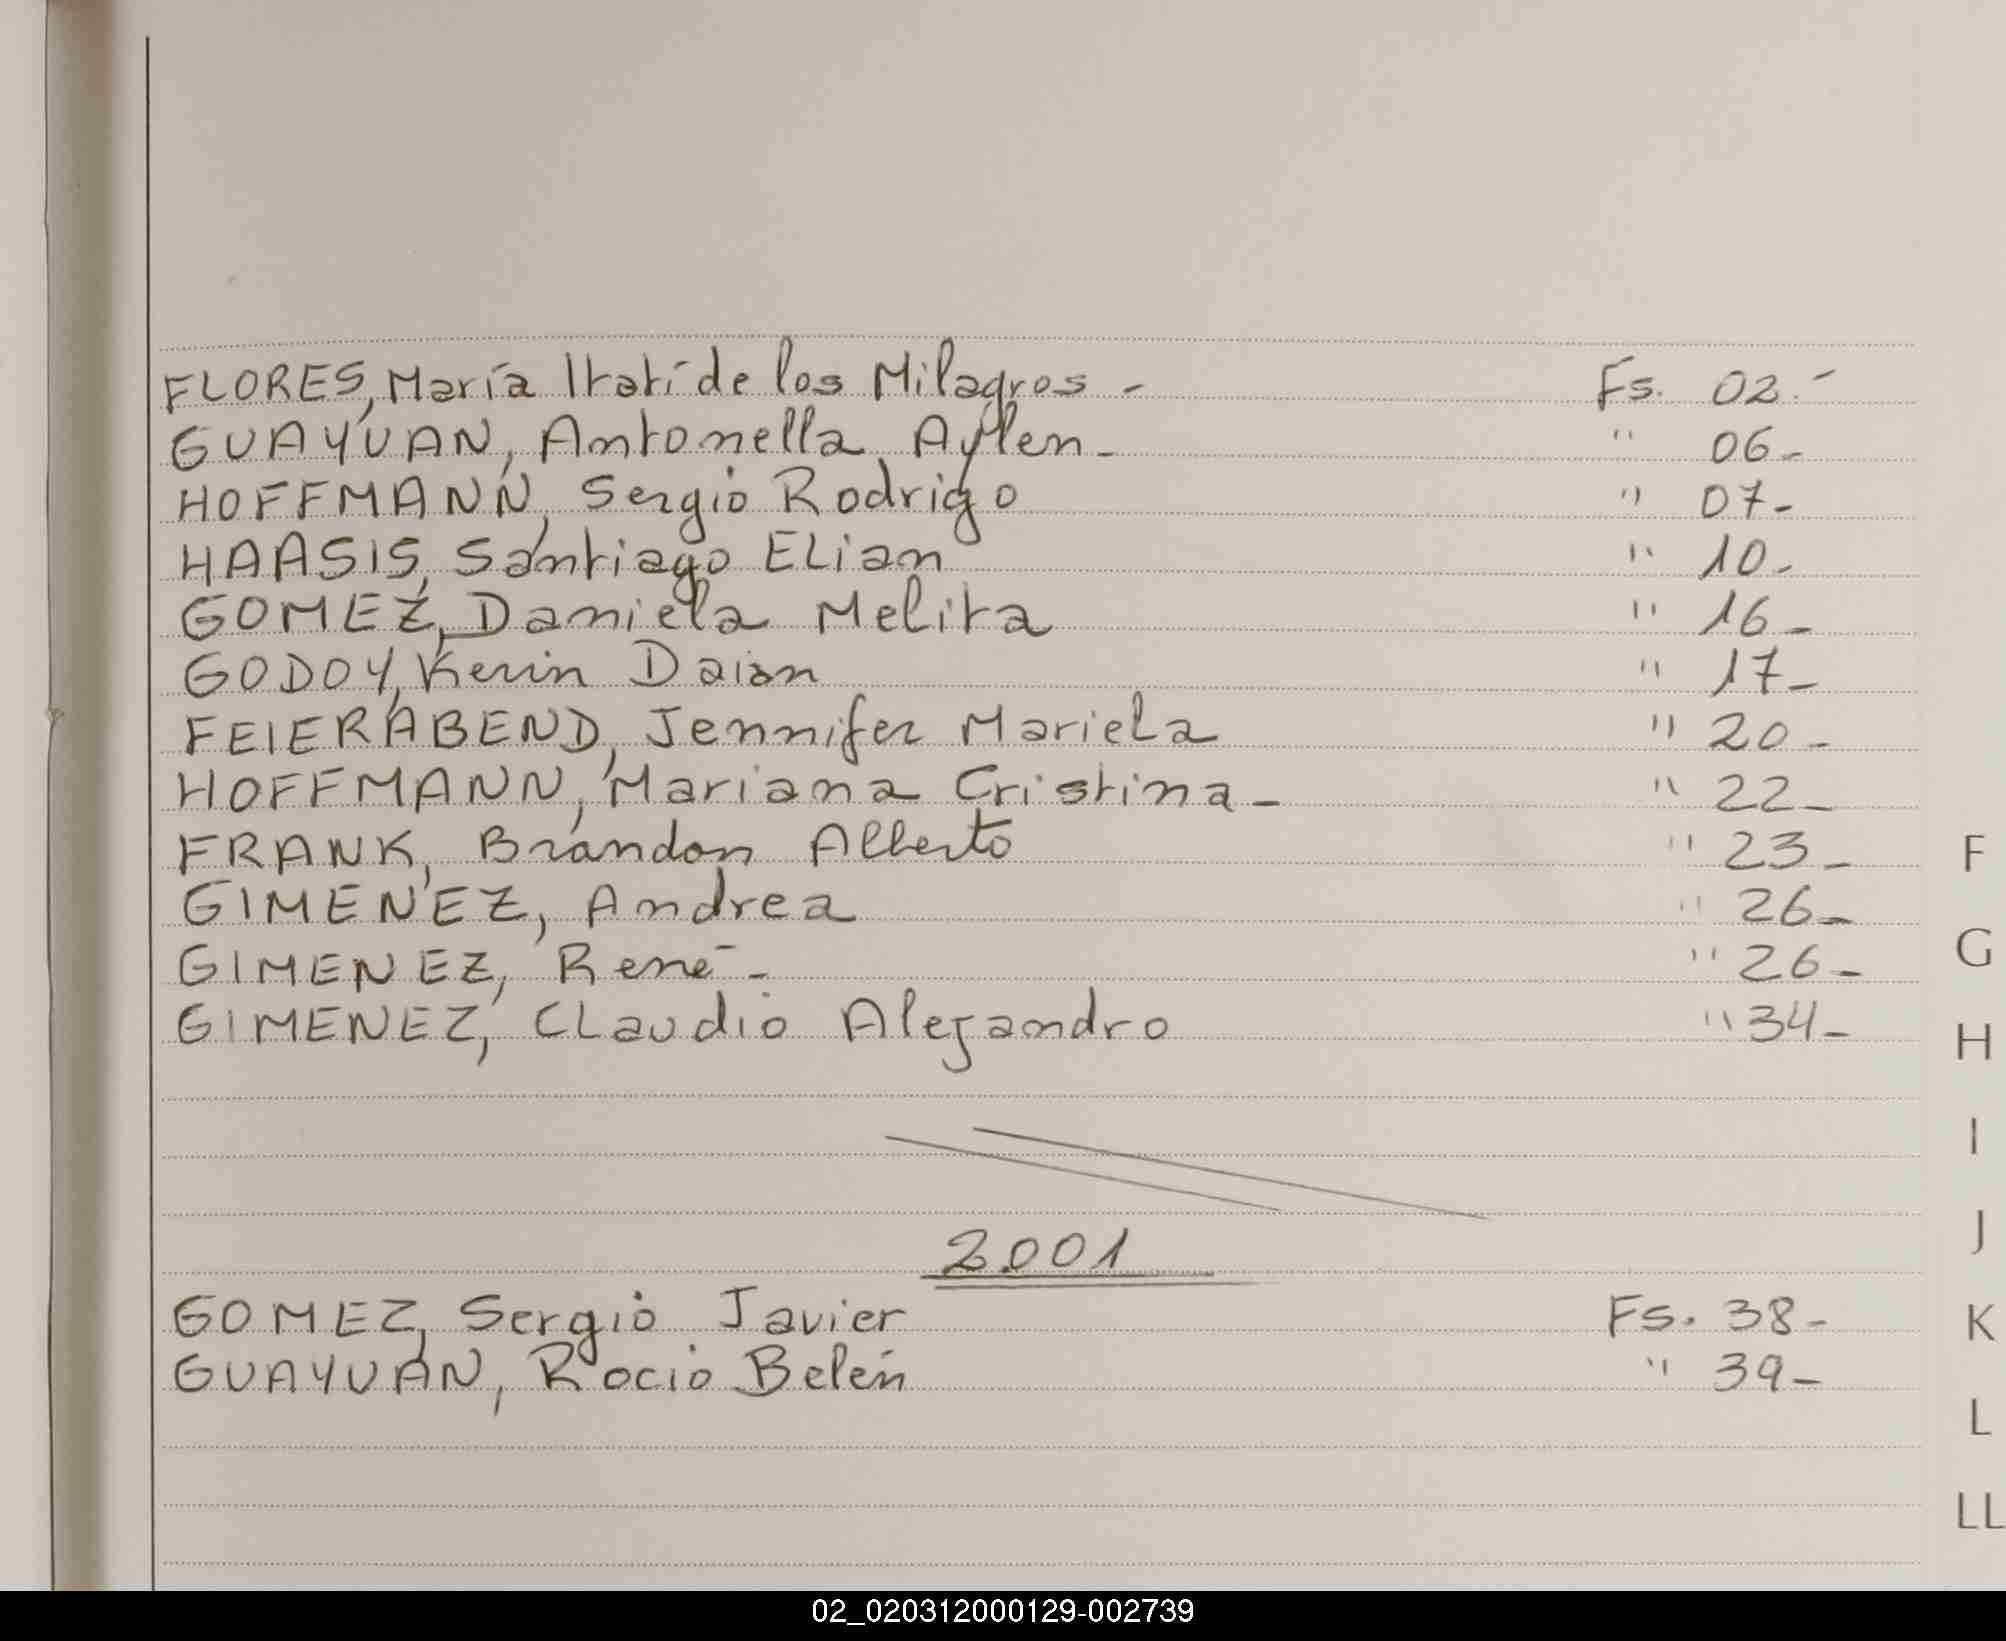 FLORES, María Itatí de los Milagros - Fs. 02.-
GUAYUAN, Antonella Aylen - " 06-
HOFFMANN, Sergio Rodrigo " 07-
HAASIS, Santiago ELian " 10-
GOMEZ, Daniela Melita " 16-
GODOY, Kevin Daian " 17-
FEIERABEND, Jennifer Mariela " 20-
HOFFMANN, Mariana Cristina - " 22-
FRANK, Brandon Alberto " 23-
GIMENEZ, Andrea " 26-
GIMENEZ, René - " 26-
GIMENEZ, CLaudio Alejandro " 34-
2.001
GOMEZ, Sergio Javier Fs. 38-
GUAYUAN, Rocio Belén " 39-
F
G
H
I
J
K
L
LL
02_020312000129-002739